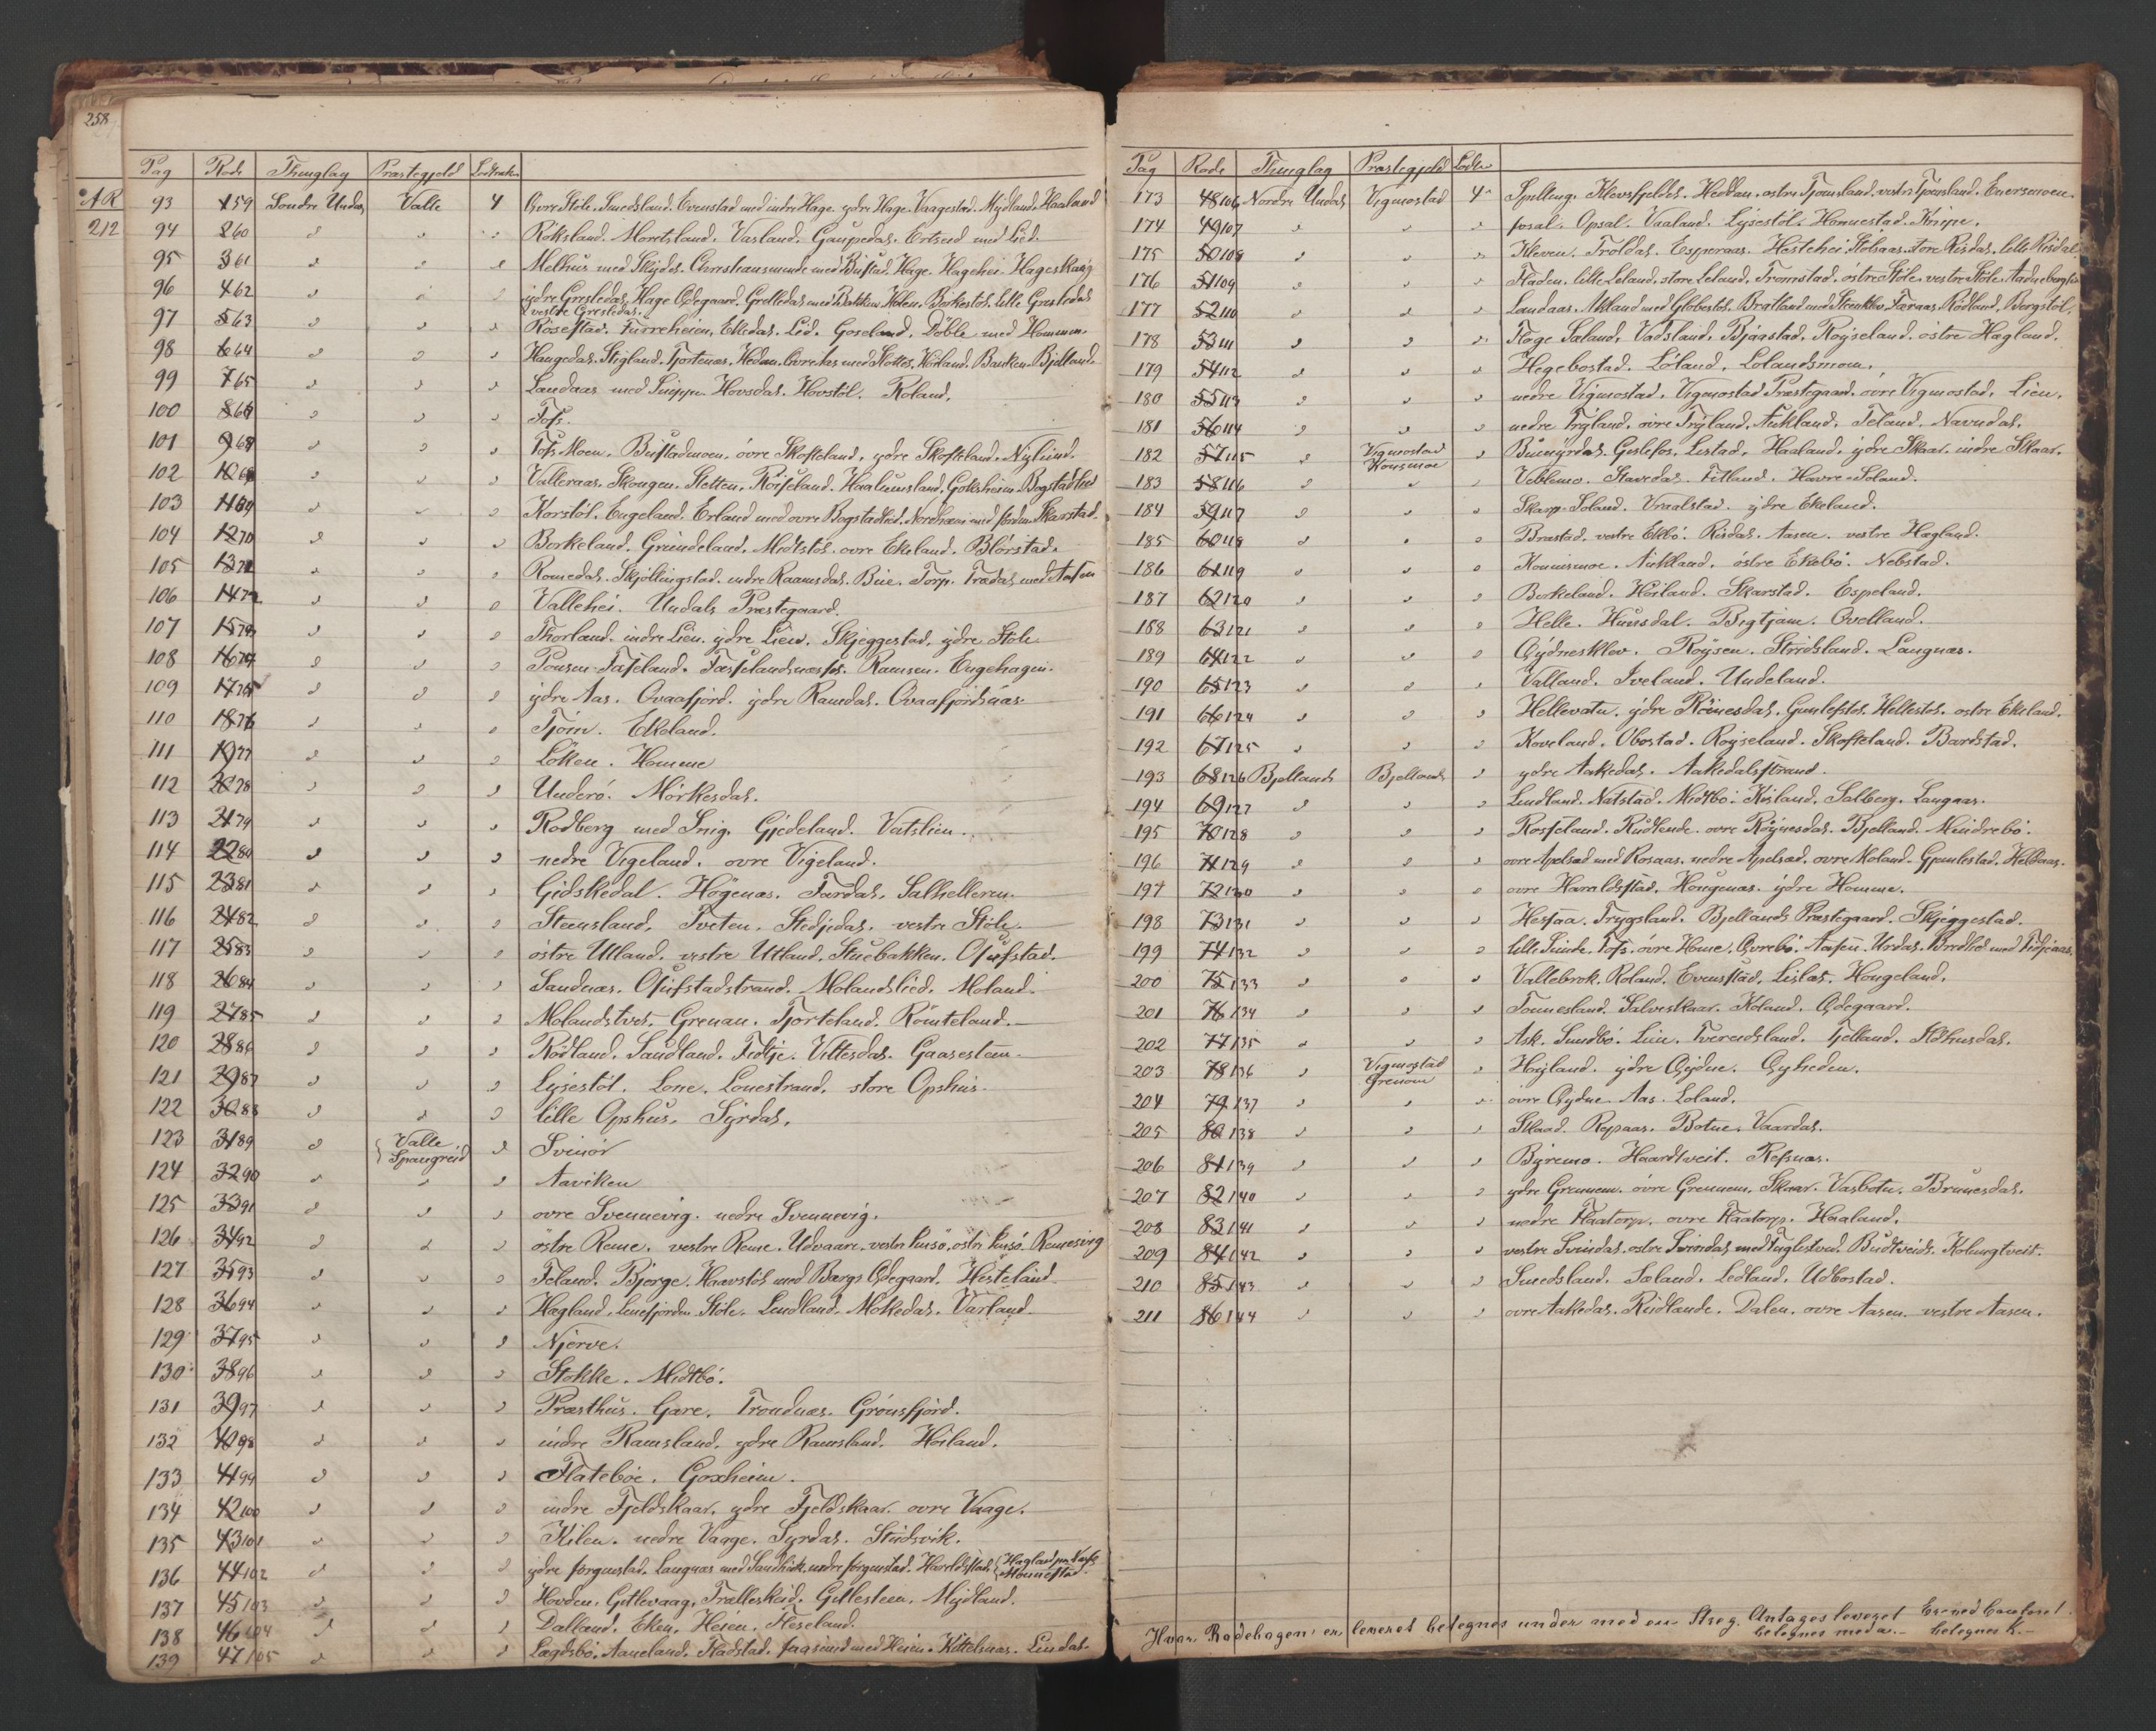 258
Pag Rode Thinglag Præstegjeld Lodtrækn
AR 93 1 59 Søndre Undal Valle 4 Øvre Støle. Smedsland. Evenstad med indre Hage. ydre Hage. Vaagestad. Mydland. Haaland
212 94 2 60 " " " Røksland. Moretsland. Vasland. Gaupedal. Ertseid med Lid.
95 3 61 " " " Melhus med Skydes. med Bustad. Hage. Hagehei. Hageskaar
96 4 62 " " " ydre Gresledal. Hage Ødegaard. Grelledal med Bakken. Holen. Birkestøl. lille Gresledal
vestre Gresledal.
97 5 63 " " " Røsestad. Furreheien. Ekedal. Lid. Goseland. Døble med Hommen.
98 6 64 " " " Haugedal. Stigland. Tjortenæs. Hedan. med Slottet. Høiland. Banken. Bjelland.
99 7 65 " " " Landaas med Snippen. Hovsdal. Hovstøl. Roland.
100 8 66 " " " Tofs.
101 9 67 " " " Tofs Moen. Bustadmoen. øvre Skofteland. ydre Skofteland. Nylund.
102 10 68 " " " Valleraas. Skougen. Sletten. Røiseland. Haalumsland. Goksheim. Bogstadlid
103 11 69 " " " Korstøl. Engeland. Erland med øvre Bogstadlid. Nordheim med Skarstad.
104 12 70 " " " Borkeland. Grundeland. Midtstøl. øvre Ekeland. Blørstad.
105 13 71 " " " Romedal. Skjøllingstad. indre Raamsdal. Bue. Torp. Trædal med Aasen
106 14 72 " " " Vallehei. Undals Præstegaard.
107 15 73 " " " Thorland. indre Lien. ydre Lien. Skjeggestad. ydre Støle.
108 16 74 " " " Tousen. Fasseland. Fasselandsnæss. Ramsen. Engehagen.
109 17 75 " " " ydre Aas. Ovaafjord. ydre Ramdal. Ovaafjordsnæs.
110 18 76 " " " Tjøm. Ekeland.
111 19 77 " " " Løken. Homme
112 20 78 " " " Underø. Mørkesdal.
113 21 79 " " " Rødberg med Snig. Gjedeland. Vatslien.
114 22 80 " " " nedre Vigeland. øvre Vigeland.
115 23 81 " " " Gidskedal. Høgenæs. Fardal. Salhelleren.
116 24 82 " " " Steensland. Tveten. Stedjedal. vestre Støle.
117 25 83 " " " østre Udland. vestre Udland. Stuebakken. Osufstad.
118 26 84 " " " Sandnæs. Osufstadstrand. Molandslid. Moland.
119 27 85 " " " Molandstvet. Grenan. Tjorteland. Rømteland.
120 28 86 " " " Rødland. Sandland. Fidtje. Vittesdal. Gaasesteen.
121 29 87 " " " Lysestøl. Lone. Lonestrand. store Opshus.
122 30 88 " " " lille Opshus. Syrdal.
123 31 89 " Valle Spangreid " Svinør
124 32 90 " " " Aaviken
125 33 91 " " " øvre Svennevig. nedre Svennevig.
126 34 92 " " " østre Reme. vestre Reme. Udvaare. vestre Imsø. østre Imsø. Remesvig
127 35 93 " " " Feland. Bjerge. Haavstøl med Bergs Ødegaard. Hesteland.
128 36 94 " " " Hægland. Lenefjorden. Støle. Lindland. Møkedal. Varland.
129 37 95 " " " Njerve.
130 38 96 " " " Stokke. Midtbø.
131 39 97 " " " Præsthus. Gare. Trondnæs. Grønsfjord.
132 40 98 " " " indre Ramsland. ydre Ramsland. Høiland.
133 41 99 " " " Flatebøe. Goxheim.
134 42 100 " " " indre Fjeldskaar. ydre Fjeldskaar. øvre Vaage.
135 43 101 " " " Kilen. nedre Vaage. Syrdal. Studsvik.
136 44 102 " " " ydre Jørgenstad. Langnæs med Sandbæk. nedre Jørgenstad. Haraldstad. Hægland
Monnestad.
137 45 103 " " " Hovden. Gitlevaag. Trælleskeid. Gitlesteen. Mydland.
138 46 104 " " " Dalland. Eken. Heien. Heseland.
139 47 105 " " " Lægdsbø. Aaneland. Fladstad. Faasund med Heien. Kittelsnæs. Lindal.
Pag Rode Thinglag Præstegjeld Lodtr
173 48 106 Nordre Undal Vigmostad 4 Spilling. Klevsfjeldet. Heddan. østre Tjomsland. vestre Tjomsland. Eversmoen.
174 49 107 " " " Fosal. Opsal. Vaaland. Lysestøl. Homestad. Knipe.
175 50 108 " " " Kleven. Troldal. Esperaas. Hestehei. Stølsaas. store Risdal. lille Risdal
176 51 109 " " " Fladen. lille Leland. store Leland. Tromstad. østre Støle. vestre Støle. Aadneberg
177 52 110 " " " Landaas. Askland med Globestøl. Bratland med Steenklev. Faraas. Rødland. Bergstøl.
178 53 111 " " " Foge. Sæland. Vadsland. Bjaastad. Røyseland. østre Hægland.
179 54 112 " " " Hegebostad. Løland. Lølandsmoen.
180 55 113 " " " nedre Vigmostad. Vigmostad Præstegaard. øvre Vigmostad. Lien.
181 56 114 " " " nedre Trygland. øvre Trygland. Aukland. Feland. Navndal.
182 57 115 " Vigmostad Konsmoe " Buemyrdal. Gislefos. Lestad. Haaland. ydre Skaar. indre Skaar.
183 58 116 " " " Veblemo. Stavedal. Fitland. Havre-Soland.
184 59 117 " " " Skarp-Soland. Vraalstad. ydre Ekeland.
185 60 118 " " " Brastad. vestre Ekbø. Risdal. Aasen. vestre Hægland.
186 61 119 " " " Konnismoe. Aukland. østre Ekebø. Nebstad.
187 62 120 " " " Birkeland. Høiland. Skarstad. Espeland.
188 63 121 " " " Helle. Hunsdal. Bigtjøm. Ovelland.
189 64 122 " " " Gydnesklev. Røysen. Stridsland. Langnæs.
190 65 123 " " " Valland. Iveland. Undeland.
191 66 124 " " " Hellevatn. ydre Røinesdal. Gunlefstøl. Hellestøl. østre Ekeland.
192 67 125 " " " Koveland. Obostad. Røyseland. Skofteland. Bardstad.
193 68 126 Bjelland Bjelland " ydre Aakedal. Aakedalstrand.
194 69 127 " " " Lindland. Natstad. Midtbø. Kisland. Salberg. Langnæs.
195 70 128 " " " Rosseland. Rudlende. øvre Røynesdal. Bjelland. Mindrebø.
196 71 129 " " " øvre Apelsæd med Rosaas. nedre Apelsæd. øvre Moland. Gjemlestad. Heddaas.
197 72 130 " " " øvre Haraldstad. Hougenæs. ydre Homme.
198 73 131 " " " Hessaa. Trygsland. Bjellands Præstegaard. Skjeggestad.
199 74 132 " " " lille Sunde. Tofs. øvre Home. Øvrebø. Aasen. Urdal. Bredlid med Fidjeaas.
200 75 133 " " " Vallebrok. Roland. Evenstad. Lislæs. Hougeland.
201 76 134 " " " Tonnesland. Salveskaar. Koland. Ødegaard.
202 77 135 " " " Ask. Sundbø. Lien. Tverendsland. Fjelland. Ildhusdal.
203 78 136 " Vigmostad Grenom " Høyland. ydre Gydne. Gyheden.
204 79 137 " " " øvre Gydne. Aas. Loland.
205 80 138 " " " Slaad. Repaas. Botne. Vaardal.
206 81 139 " " " Byremo. Haardtveit. Refsnæs.
207 82 140 " " " ydre Grennem. øvre Grennem. Skaar. Vasbotn. Brunesdal.
208 83 141 " " " nedre Flaatorp. øvre Flaatorp. Haaland.
209 84 142 " " " vestre Svindal. østre Svindal med Fuglestved. Budtveid. Kolungtveit.
210 85 143 " " " Smedsland. Sæland. Ledland. Udbostad.
211 86 144 " " " øvre Aakedal. Rudlande. Dalen. øvre Aasen. vestre Aasen.
Hvor Rodebogen er leveret betegnes under med en Streg. Antages leveret
betegnes med a.—
betegnes K.—